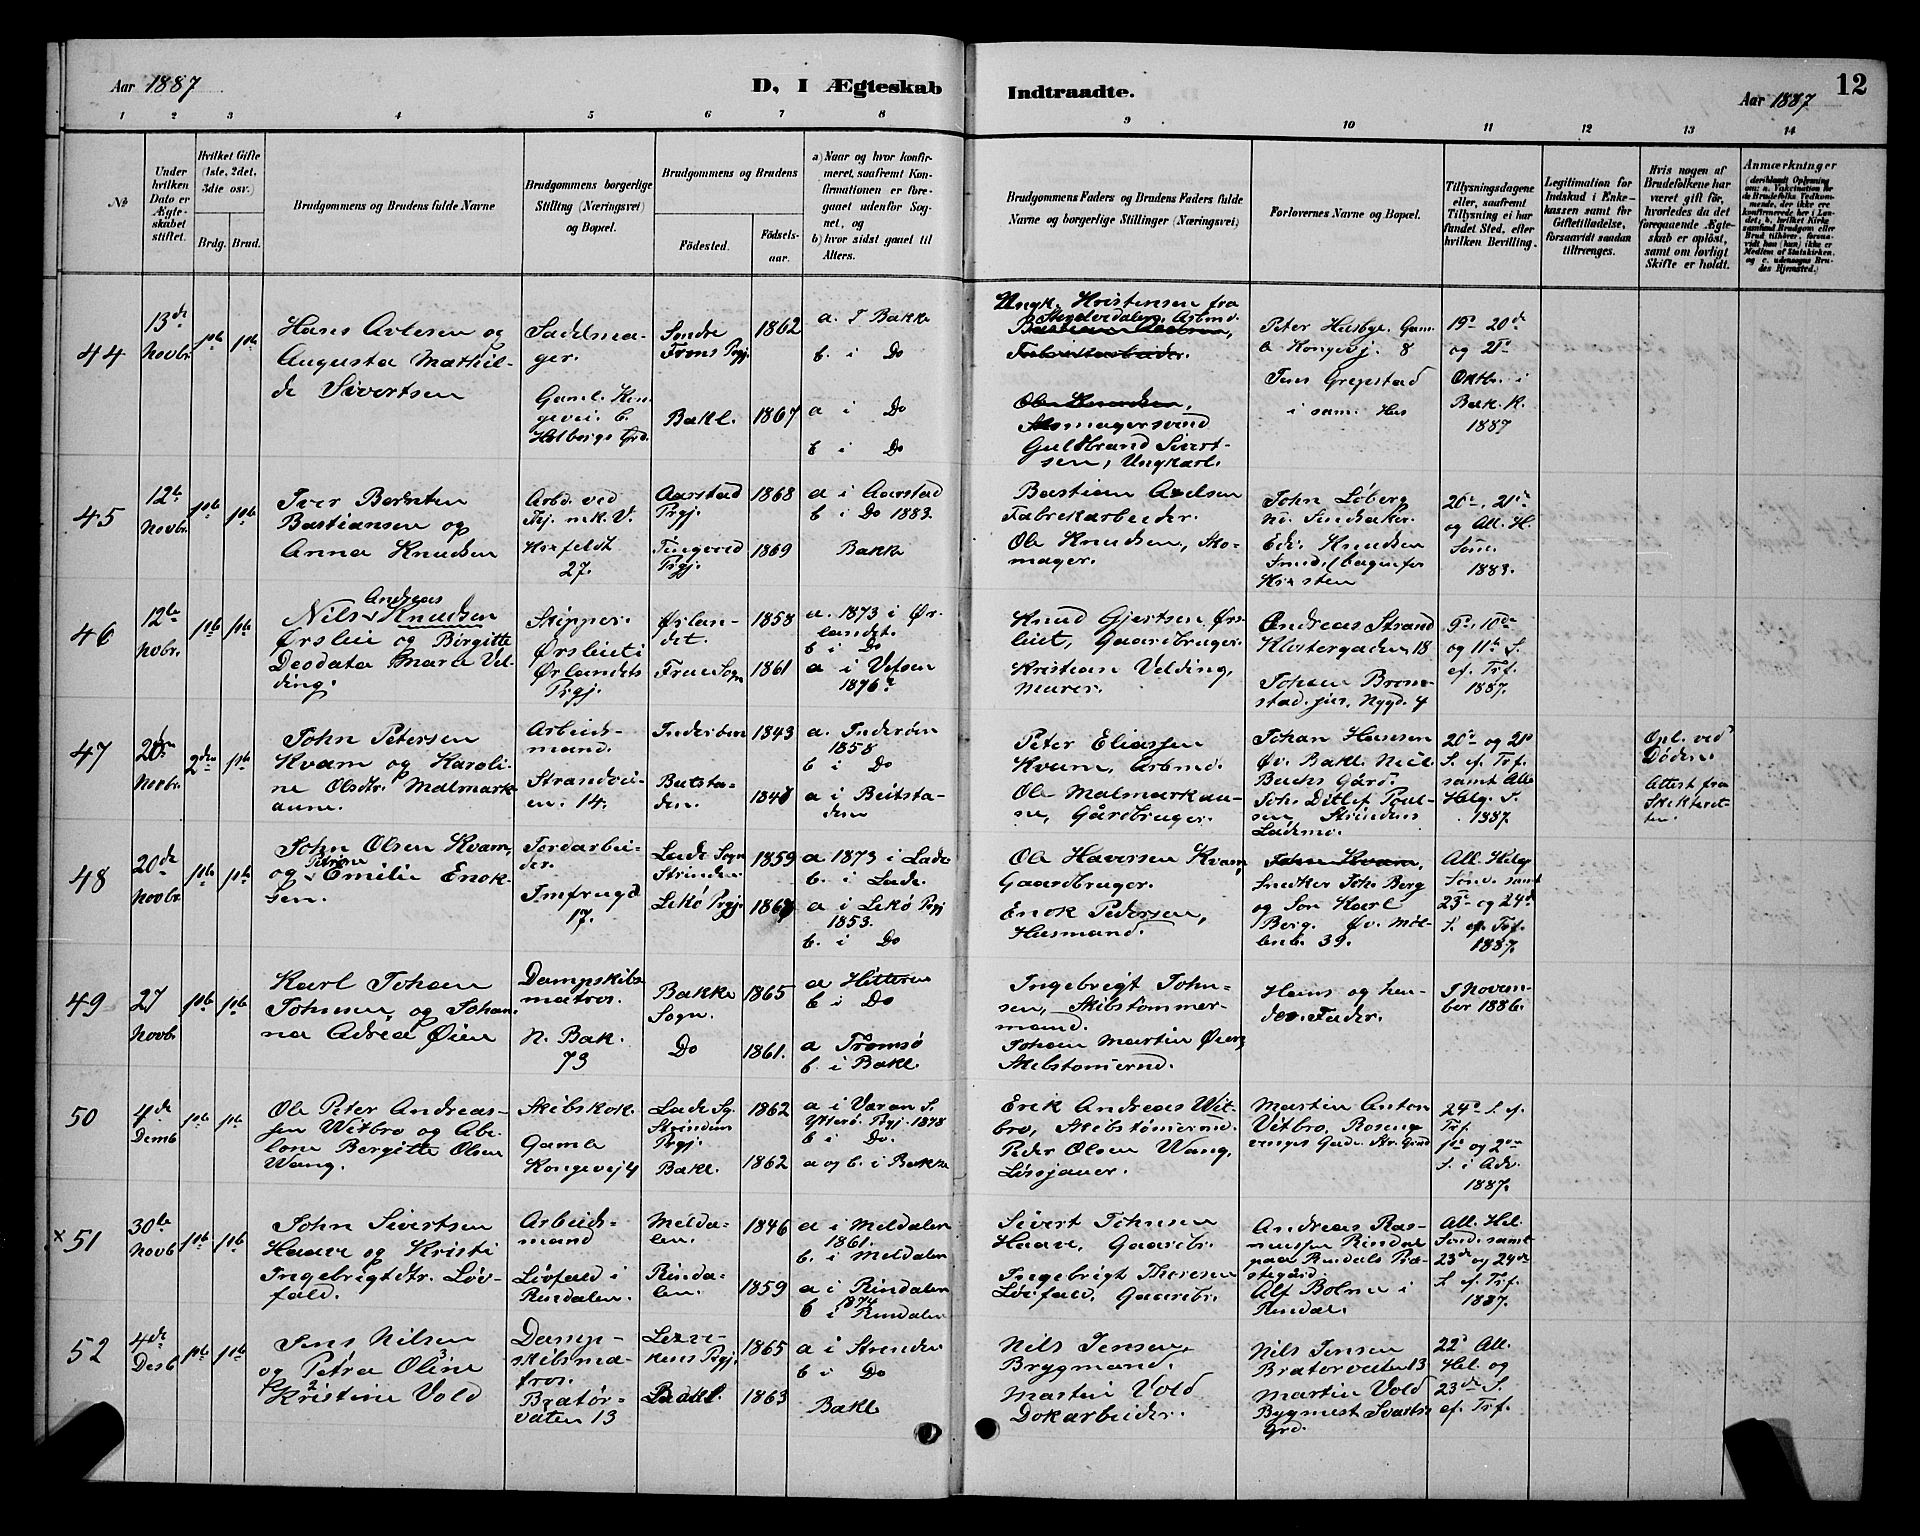 Aar 1887
D, I Ægteskab
Indtraadte.
Aar 1887
12
1 2 3 4 5 6 7 8 9 10 11 12 13 14
No
Under
hvilken
Dato er
Ægte-
skabet
stiftet.
Hvilket Gifte
(1ste, 2det,
3die osv.)
Brdg. Brud.
Brudgommens og Brudens fulde Navne
Brudgommens borgerlige
Stilling (Næringsvei)
og Bopæl.
Brudgommens og Brudens
Födested.
Födsels-
aar.
a) Naar og hvor konfir-
meret, saafremt Kon-
firmationen er fore-
gaaet udenfor Sog-
net, og
b) hvor sidst gaaet til
Alters.
Brudgommens Faders og Brudens Faders fulde
Navne og borgerlige Stillinger (Næringsvei)
Forlovernes Navne og Bopæl.
Tillysningsdagene
eller, saafremt
Tillysning ei har
fundet Sted, efter
hvilken Bevilling.
Legitimation for
Indskud i Enke-
kassen samt for
Giftetilladelse,
forsaavidt saadan
tiltrænges.
Hvis nogen af
Brudefolkene har
været gift för,
hvorledes da det
foregaaende Ægte-
skab er oplöst,
samt om lovligt
Skifte er holdt.
Anmærkninger
(deriblandt Oplysning
om: a. Vakcination for
de Brudefolks Vedkom-
mende, der ikke ere
konfirmerede her i Lan-
det; b. hvilket Kirke-
samfund Brudgom eller
Brud tilhörer, forsaa-
vidt han (hun) ikke er
Medlem af Statskirken,
og c. udensogns Bru-
des Hjemsted.)
44
13de
Novbr.
1ste 1ste
Hans
og
Augusta Mathil-
de Sivertsen
Sadelma-
ger.
Gaml. Kon-
gevei. 6.
Holbergs Grd.
Søndre
Frons Prgj.
1862
Bakl. 1867
a. I Bakke
b. i Do
a i Do
b i Do
Ungk. Kristensen fra
Arbmd.
Bastian Axelsen,
Fabrikarbeider.
Ole Knudsen,
Skomagersvend
Guldbrand Sivert-
sen, Ungkarl.
Peter Husbye. Gam-
le Kongevj. 8
Jens Grepstad
i sam. Hus
19de 20de
og 21de
Oktbr. i
Bak. K.
1887
45
12te
Novbr.
1ste 1ste
Iver Bernten
Bastiansen og
Anna Knudsen
Arbd. ved
27.
Aarstad
Prgj.
1868
Tingvold
Prgj.
1869
a i Aarstad
b i Do 1883.
Bakke
Bastian Axelsen
Fabrekarbeider.
Ole Knudsen, Sko-
mager.
John Løberg
Snedseker.
Edv. Knudsen
20de, 21de
og All. H.
Sønd.
1883.
46
12te
Nobr.
1ste 1ste
Andreas
Nils Knudsen
Ørsleie og Birgitte
Deodata Marie Vel-
ding.
Skipper.
Ørsleiet i
Ørlandets
Prgj.
Ørlan-
det.
1858
Frue Sogn 1861
a. 1873 i Ør-
landet.
b i Do
a i Vefsen
1876?
Knud Gjertsen Ørs-
leiet, Gaardbruger.
Kristian Velding,
Murer.
Andreas Strand
Klostergaden 18
Johan Brom-
stad. jun. Nygd. 4
9de, 10de
og 11te S.
ef. Trf.
1887.
47
20de
Novbr.
2den 1ste
John Petersen
Kvam og Karoli-
ne Olsdtr. Malmark-
aune.
Arbeids-
mand.
Strandvei-
en. 14.
Inderøen 1843
Beitsta-
den.
a. Inderøen
1858
b i Do
a i Beitsta-
den
Peter Eliassen
Kvam, Arbmd.
Ole Malmarkau-
ne, Gårdbruger.
Johan Hansen
Øv. Bakl. Niel.
Buchs Gård.
Joh. Ditlef Poul-
sen, Strindens
Lademo.
20de og 21de
S. ef. Trf.
samt Alle
Helg. S.
1887.
Opl. ved
Døden.
Attest fra
Skifteret-
ten.
48
20de
Novbr.
1ste 1ste
John Olsen Kvam,
Petrine
og Emilie Enok-
sen.
Jordarbei-
der.
Jmfrugd.
17.
Lade Sogn
Strinden
1859
Lekø Prgj.
a 1873 i Lade
b. i Lade.
a i Lekø Prgj
1853.
b. i Do
Ole Haversen Kvam,
Gaardbruger.
Enok Pedersen,
Husmand.
John Kvam,
Snedker Joh. Berg
og Søn Karl
Berg. Øv. Møl-
lenb. 39.
All. Helg
Sønd. samt
23de og 24de
S. ef. Trf.
1887.
49
27
Novb.
1ste 1ste
Karl Johan
Johnsen, og Johan-
na Adrea Øien
Dampskibs-
matros.
N. Bak.
73
Bakke
Sogn.
1865
Do 1861.
a Hitteren
b. i Do
a Tromsø
b. i Bakl.
Ingebrigt John-
sen, Skibstømmer-
mand.
Johan Martin Øien,
Skibstømernd.
Hans og hen-
des Fader.
I Novem-
ber 1886.
50
4de
Demb.
1ste 1ste
Ole Peter Andreas-
sen Witbro og Abe-
lone Bergitte Olsen
Wang.
Skibskok.
Gamle
Kongevej 4
Lade Sg.
Strinden
Prgj.
1862
Bakl. 1862
a i Varan S.
Ytterø Prgj. 1878
b i Do.
a og b. i Bakke
Erik Andreas Wit-
bro, Skibstømernd.
Peder Olsen Wang,
Løssjauer.
Martin Anton
Vitbro, Roseng.
24de S. ef.
Trf.
1ste og 2den
S. i Adv.
1887.
x 51
30te
Novb.
1ste 1ste
John Sivertsen
Haave og Kristi
Ingebrigtdtr. Løv-
fald.
Arbeids-
mand
Løvfald i
Rindalen.
Melda-
len.
1846
Rinda-
len.
1859
a i Meldalen
1861.
b. i Meldalen
a i Rindalen
1874
b i Rindalen
Sivert Johnsen
Haave, Gaardbr.
Ingebrigt Theresen
Løvfald, Gaardbr.
Andreas Ras-
mussen Rindal
paa Rindals Præ-
stegård.
Alf Bolme i
Rindal.
All. Hel.
Sønd. samt
23de og 24de
S. ef. Trf.
1887.
52
4de
Desb.
1ste 1ste
Jens Nilsen
og Petra Oline
Kristine Vold
Damp-
skibsma-
tros.
Bratør-
vaten 13
1865
Bakl. 1863
a i Strinden
b i Do
Bakl
Nils Jensen,
Brygmand.
Martin Vold
Dokarbeider.
Nils Jensen
Bratørvaten 13
Martin Vold
Bygmest. Svarts
Grd.
22de All.
Hel. og
23de S.
ef. Trf.